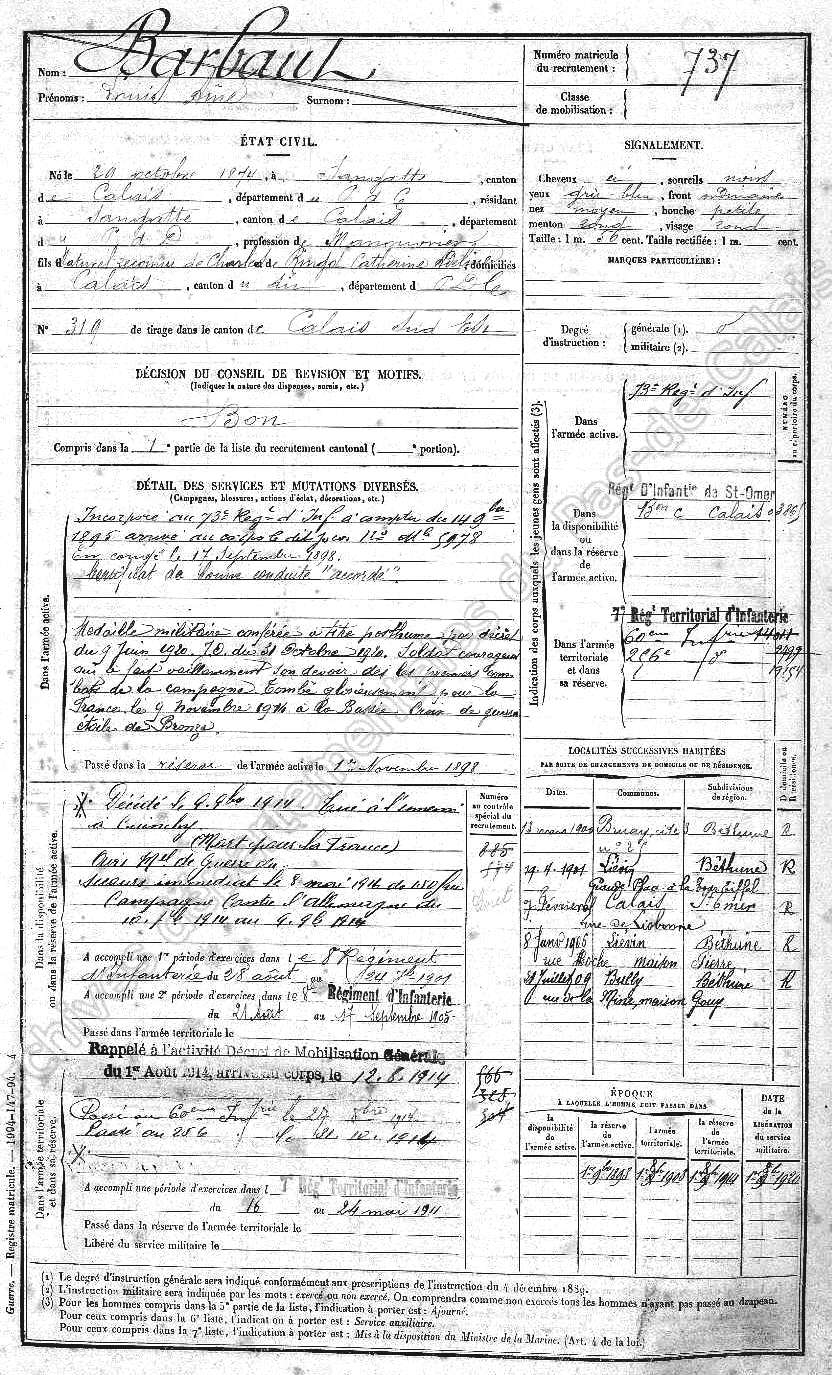 Nom : Barbaut
Prénoms : Louis Surnom :
Numéro matricule du recrutement : 737
Classe de mobilisation :
ÉTAT CIVIL.
Né le 20 octobre 1874, à Sangatte, canton
de Calais, département du P d C, résidant
à Sangatte, canton de Calais, département
du P d C, profession de
fils naturel reconnu de Charles et de Catherine domiciliés
à Calais, canton du dit, département d
N° 319 de tirage dans le canton de Calais Sud Est
SIGNALEMENT.
Cheveux , sourcils noirs
yeux gris bleu, front ordinaire
nez moyen, bouche petite
menton rond, visage rond
Taille : 1 m. 56 cent. Taille rectifiée : 1 m. cent.
MARQUES PARTICULIÈRES :
Degré d'instruction : générale (1).
militaire (2).
DÉCISION DU CONSEIL DE REVISION ET MOTIFS.
(Indiquer la nature des dispenses, sursis, etc.)
Bon
Compris dans la 1e partie de la liste du recrutement cantonal ( e portion).
DÉTAIL DES SERVICES ET MUTATIONS DIVERSES.
(Campagnes, blessures, actions d'éclat, décorations, etc.)
Dans l'armée active.
Incorporé au 73e Regt d'Inf. à compter du 14 9bre
1895 arrivé au corps le dit jour No Mle 5978
En congé le 17 Septembre 1898.
Certificat de bonne conduite "accordé".
Medaille militaire conférée à titre posthume par décret
du 9 juin 1920. J.O. du 31 Octobre 1920. Soldat courageux
a fait vaillamment son devoir dès les premiers com-
bats de la campagne. Tombé glorieusement pour la
France, le 9 Novembre 1914 à la Bassée. Croix de guerre
étoile de Bronze.
Passé dans la réserve de l'armée active le 1er Novembre 1898
Indication des corps auxquels les jeunes gens sont affectés (3).
NUMÉRO au répertoire du corps.
Dans l'armée active.
73e Regt d'Inf
Dans la disponibilité ou dans la réserve de l'armée active.
Régt D'Infantie de St-Omer
Bon C Calais
Dans l'armée territoriale et dans sa réserve.
7e Régt Territorial d'Infanterie
60eme Infrie
256e
LOCALITÉS SUCCESSIVES HABITÉES
PAR SUITE DE CHANGEMENTS DE DOMICILE OU DE RÉSIDENCE.
Dates. Communes. Subdivisions de région. D domicile ou R résidence.
13 mars 1900 Bruay, cité 3 Béthune R
n° 26
19.4.1901 Liévin Béthune R
Calais St Omer R
rue de Lisbonne
8 Janv 1905 Liévin Béthune R
maison Pierre
31 Juillet 09 Bully Béthune R
Dans la disponibilité ou dans la réserve de l'armée active.
Numéro au contrôle spécial du recrutement.
Décédé le 9 9bre 1914. Tué à l'ennemi
à Cuinchy
(Mort pour la France)
Avis Mel de Guerre du
Secours immédiat le 8 mai 1914 de 150 frs
Campagne Contre l'Allemagne du
au 9.9b 1914
A accompli une 1re période d'exercices dans le 8e Regiment
d'Infanterie du 28 août au 24 7bre 1901
A accompli une 2e période d'exercices dans le 8e Régiment d'Infanterie
du 21 août au 17 Septembre 1905
Passé dans l'armée territoriale le
Dans l'armée territoriale et dans sa réserve.
Rappelé à l'activité Décret de Mobilisation Générale
du 1er Août 1914, arrivé au corps, le 12.8.1914
Passé au 60eme Infrie le 8bre 1914
Passé au 256 le 31.10.1914
A accompli une période d'exercices dans l 7e Régt Territorial d'Infanterie
du 16 au 24 mai 1911
Passé dans la réserve de l'armée territoriale le
Libéré du service militaire le
ÉPOQUE
À LAQUELLE L'HOMME DOIT PASSER DANS
la disponibilité de l'armée active. la réserve de l'armée active. l'armée territoriale. la réserve de l'armée territoriale.
DATE de la LIBÉRATION du service militaire.
1er 9bre 1898
(1) Le degré d'instruction générale sera indiqué conformément aux prescriptions de l'instruction du 4 décembre 1889.
(2) L'instruction militaire sera indiquée par les mots : exercé ou non exercé. On comprendra comme non exercés tous les hommes n'ayant pas passé au drapeau.
(3) Pour les hommes compris dans la 5e partie de la liste, l'indication à porter est : Ajourné.
Pour ceux compris dans la 6e liste, l'indication à porter est : Service auxiliaire.
Pour ceux compris dans la 7e liste, l'indication à porter est : Mis à la disposition du Ministre de la Marine. (Art. 4 de la loi.)
Guerre. — Registre matricule. — 1994-147-94. 4
Archives départementales du Pas-de-Calais